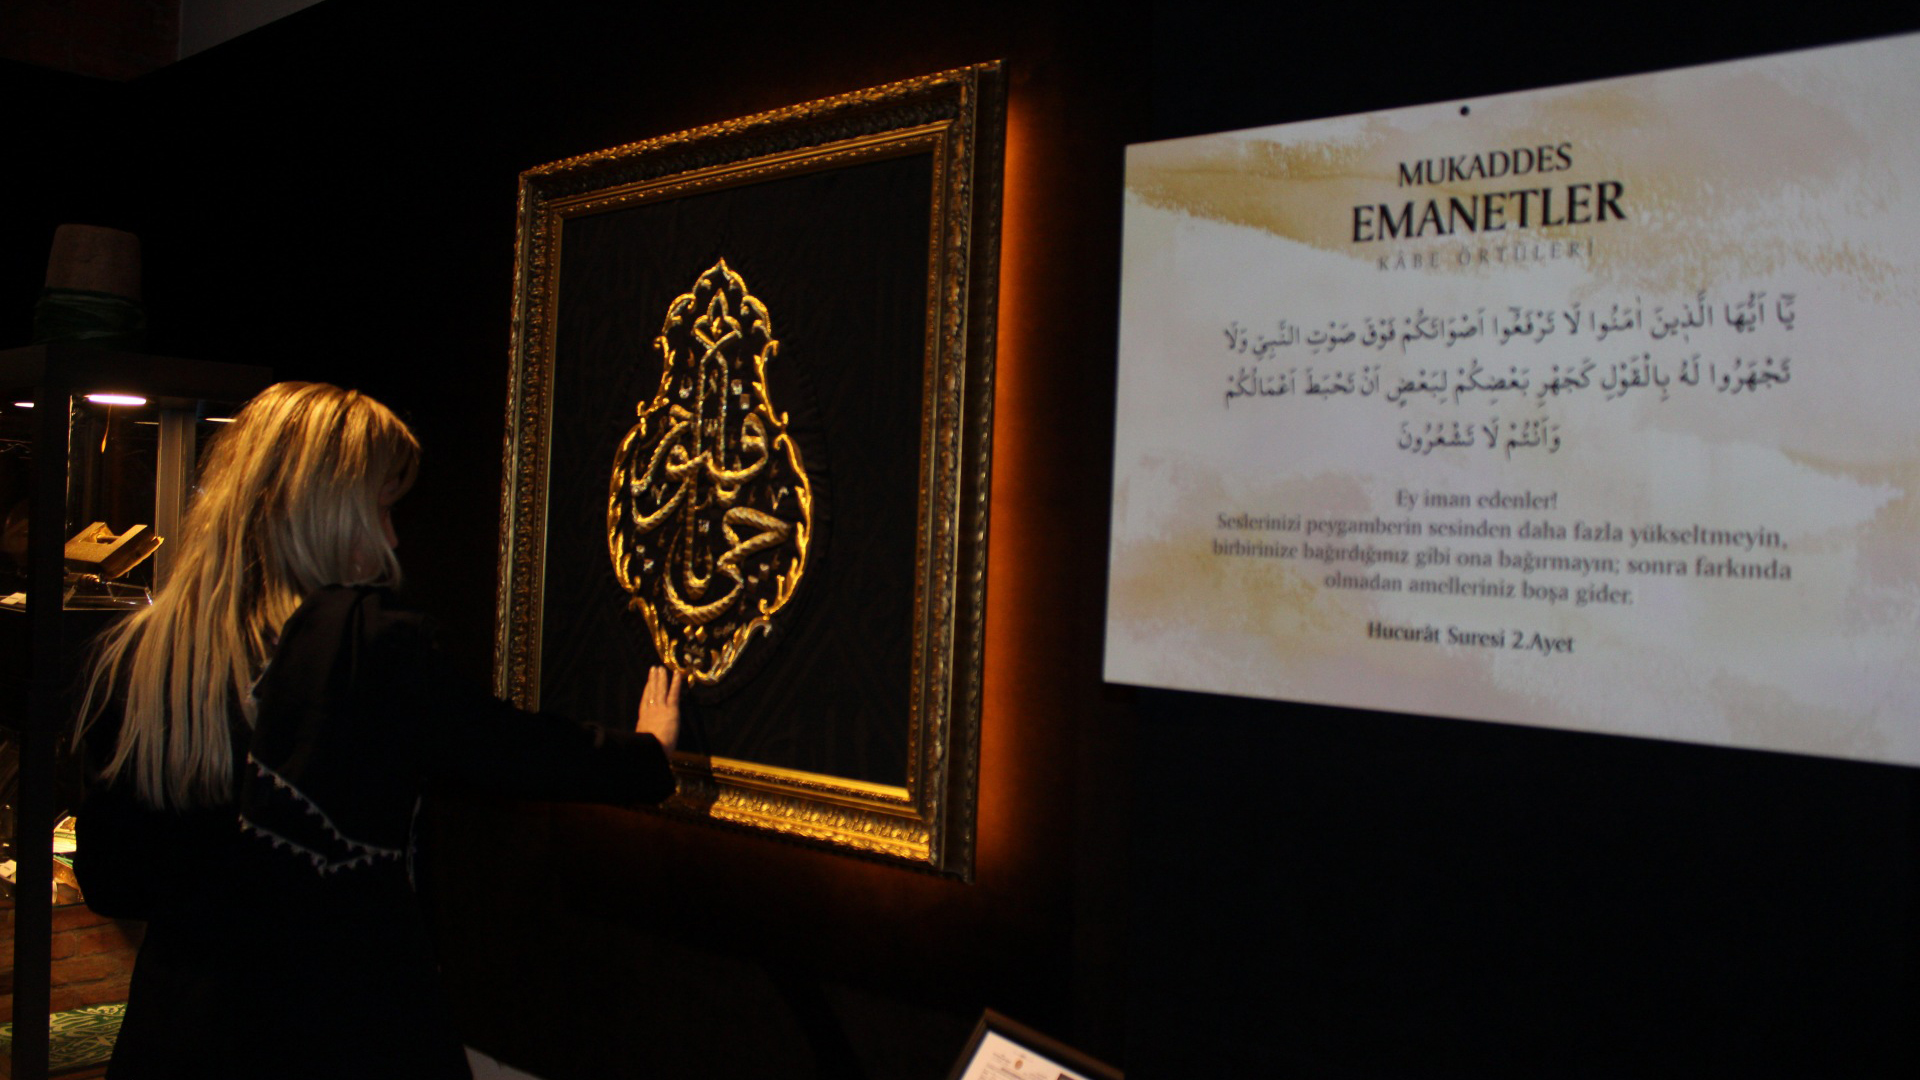 MUKADDES
EMANETLER
KÂBE ÖRTÜLERİ
يَٓا اَيُّهَا الَّذ۪ينَ اٰمَنُوا لَا تَرْفَعُٓوا اَصْوَاتَكُمْ فَوْقَ صَوْتِ النَّبِيِّ وَلَا
تَجْهَرُوا لَهُ بِالْقَوْلِ كَجَهْرِ بَعْضِكُمْ لِبَعْضٍ اَنْ تَحْبَطَ اَعْمَالُكُمْ
وَاَنْتُمْ لَا تَشْعُرُونَ
Ey iman edenler!
Seslerinizi peygamberin sesinden daha fazla yükseltmeyin,
birbirinize bağırdığınız gibi ona bağırmayın; sonra farkında
olmadan amelleriniz boşa gider.
Hucurât Suresi 2.Ayet